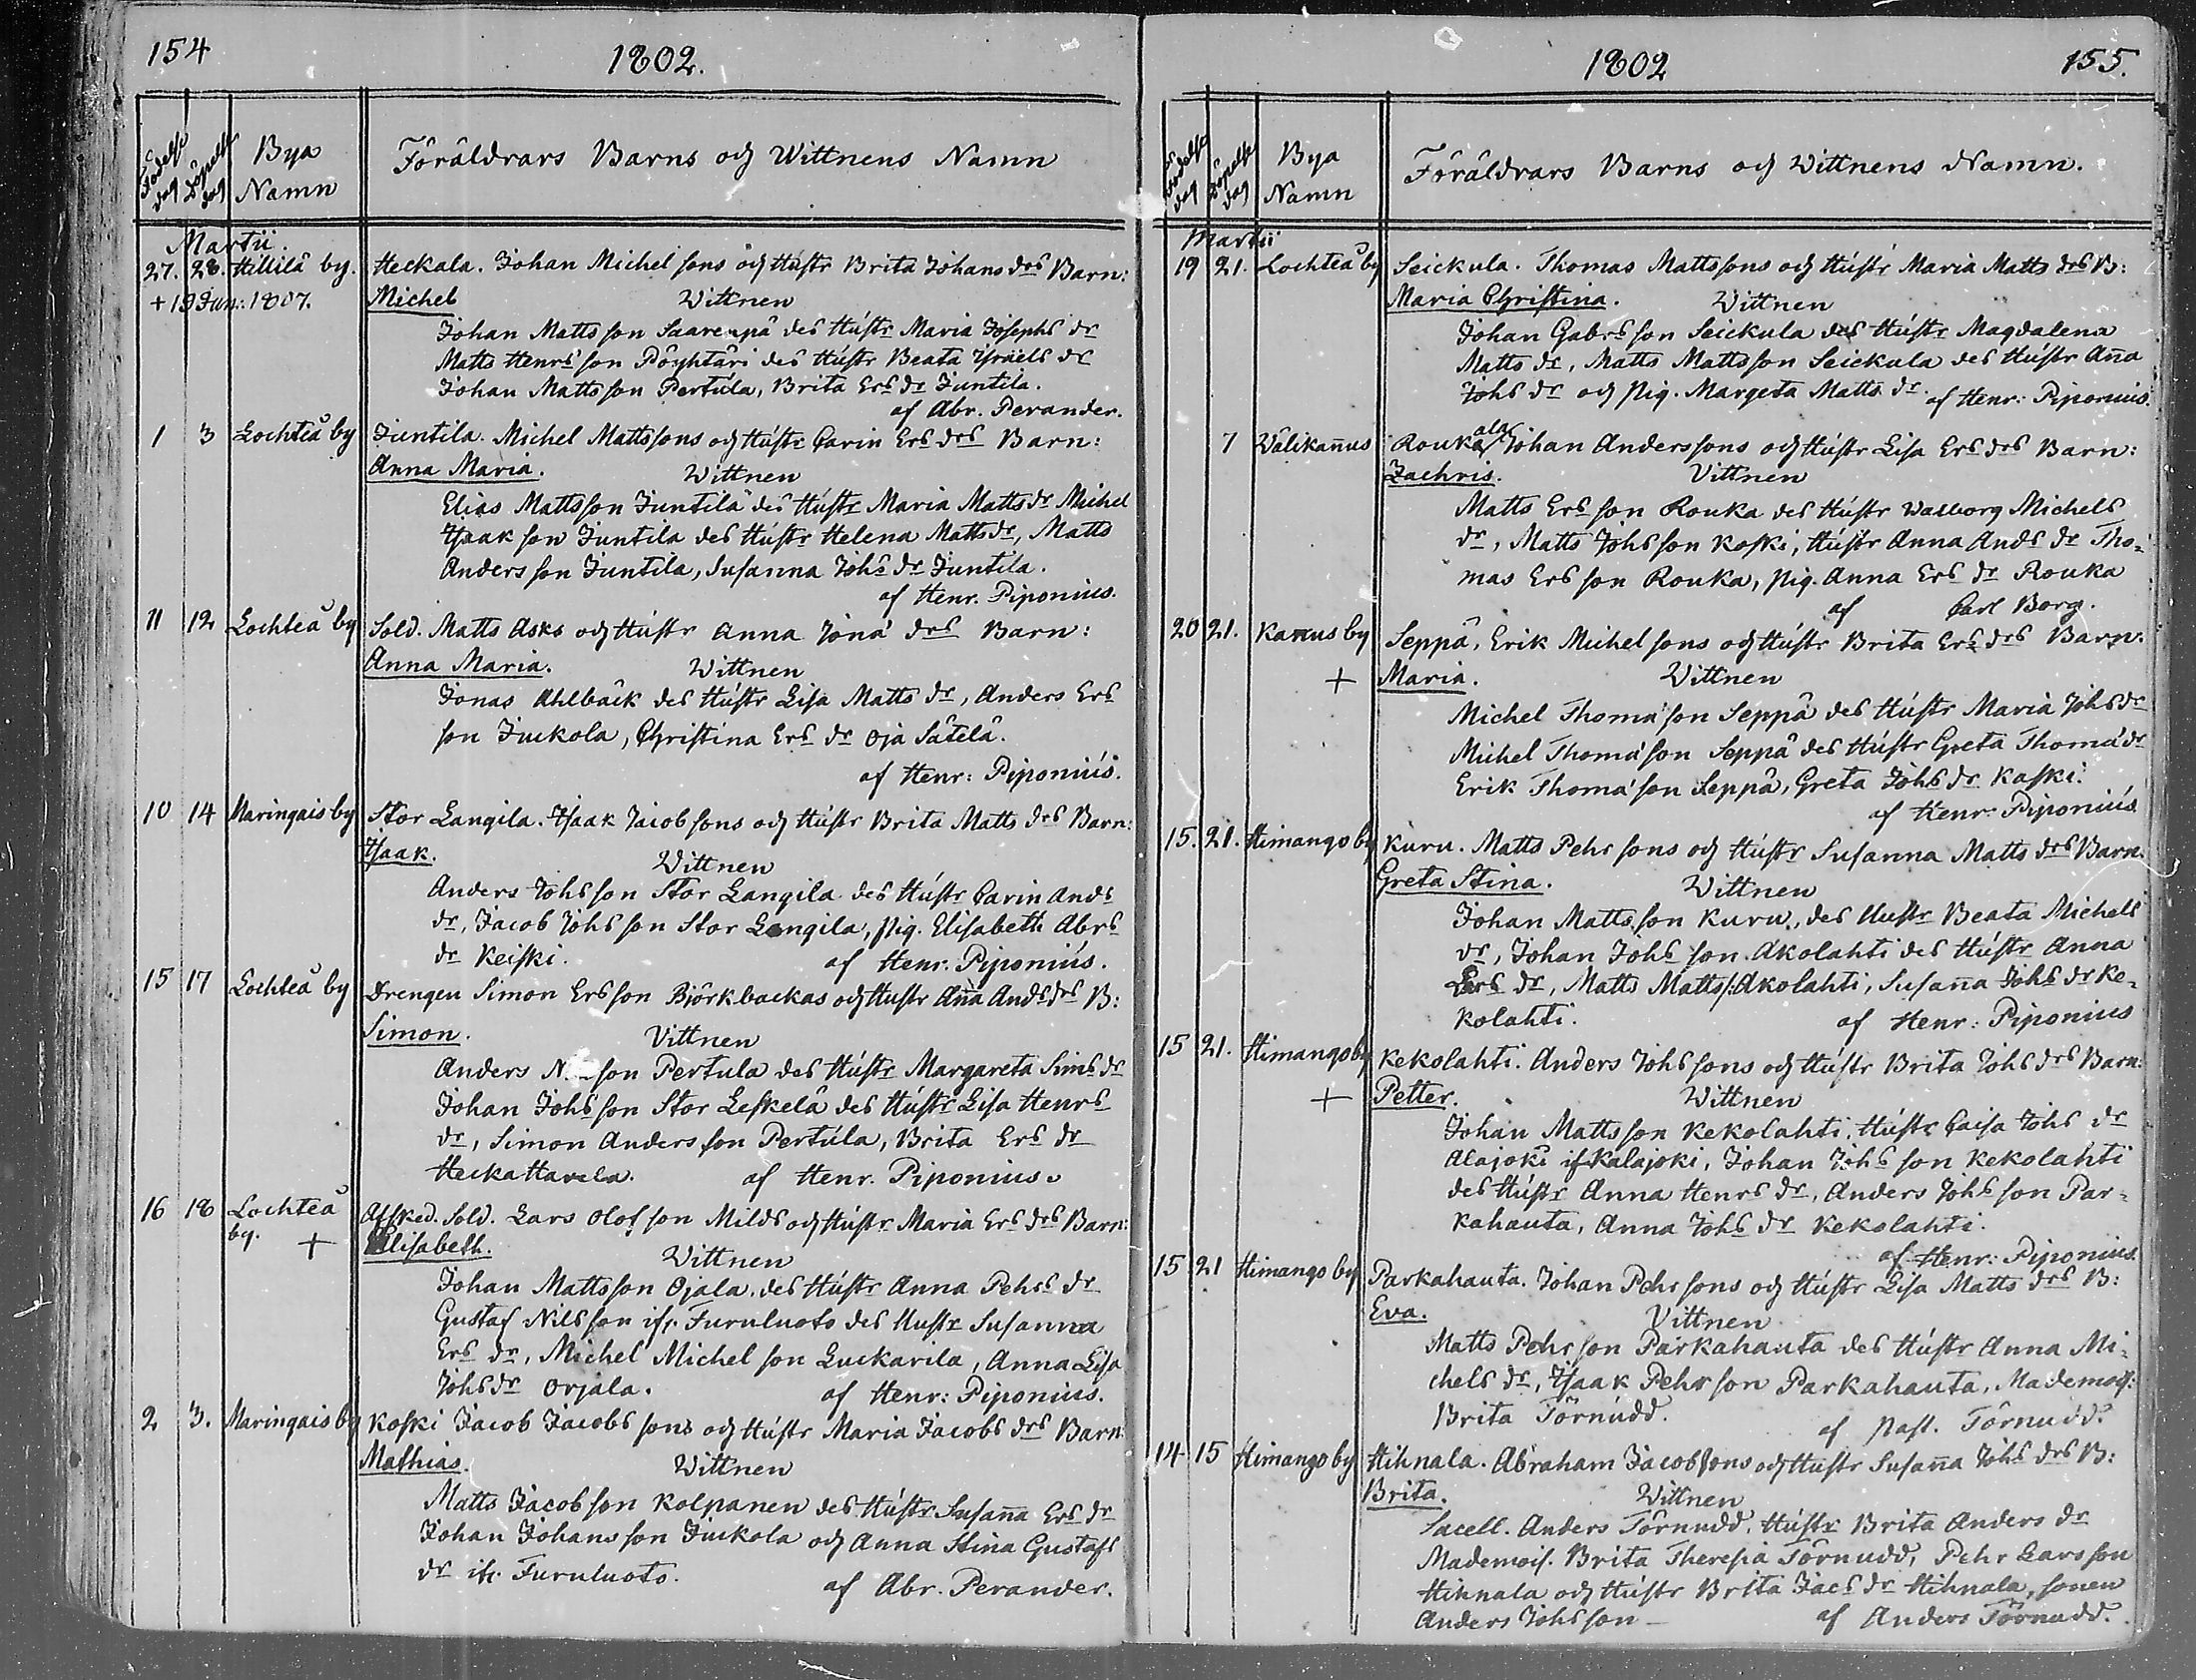 154
1802.
Födelse dag
Döpelse dag
Bya Namn
Föräldrars Barns och Wittnens Namn
Martii.
27. 28. Hillilä by. Heckala. Johan Michelsons och Hústr Brita Johans drs Barn:
+ 19 Jun: 1807. Michel Wittnen
Johan Mattsson Saarenpä des Hústr Maria Josephs dr
Matts Henrs son Pöyhtäri des Hústr Beata Israels dr
Johan Mattsson Pertúla, Brita Ers dr Juntila.
af Abr. Perander.
1 3 Lochteå by Juntila. Michel Mattssons och Hústr Carin Ers drs Barn:
Anna Maria. Wittnen
Elias Mattsson Juntila des Hústr Maria Matts dr Michel
Isaakson Juntila des Hústr Helena Matts dr, Matts
Andersson Juntila, Susanna Johs dr Juntila.
af Henr. Piponius.
11 12 Lochteå by Sold. Matts Asks och Hústr Anna Jona drs Barn:
Anna Maria. Wittnen
Jonas Ahlbäck des Hústr Lisa Matts dr, Anders Ers
son Juckola, Christina Ers dr Oja Sätelä.
af Henr: Piponiús.
10 14 Maringais by Stor Langila. Isaak Jacobsons och Hústr Brita Matts drs Barn:
Isaak. Wittnen
Anders Johsson Stor Langila des Hústr Carin Ands
dr, Jacob Johsson Stor Langila, pig. Elisabeth Abrs
dr Keiski. af Henr. Piponiús.
15 17 Lochteå by Drengen Simon Ersson Björkbackas och Hustr Aña Ands drs B:
Simon. Vittnen
Anders son Pertula des Hústr Margareta Sims dr
Johan Johsson Stor Leskelä des Hústr Lisa Henrs
dr, Simon Andersson Pertúla, Brita Ers dr
Heckattavela. af Henr. Piponius.
16 18 Lochteå Afsked. Sold. Lars Olofson Milds och Hústr Maria Ers drs Barn:
by. + Elisabeth. Wittnen
Johan Mattsson Ojala, des Hústr Anna Pehrs dr
Gustaf Nilsson ifr. Furuluoto des Hustr Susanna
Ers dr, Michel Michelson Luckarila, Anna Lisa
Johs dr Orjala. af Henr: Piponiús.
2 3. Maringais by Koski Jacob Jacobs sons och Hústr Maria Jacobs drs Barn:
Mathias. Wittnen
Matts Jacobson Kolpanen des Hústr Susaña Ers dr
Johan Johansson Juckola och Anna Stina Gustafs
dr ifr. Furuluoto. af Abr. Perander.
1802
155.
Födelse dag
Döpelse dag
Bya Namn
Föräldrars Barns och Wittnens Namn.
Martii
19 21. Lochteå by Seickula. Thomas Mattssons och Hústr Maria Matts drs B:
Maria Christina. Wittnen
Johan Gabrsson Seickula des Hústr Magdalena
Matts dr, Matts Mattsson Seickula des Hústr Aña
Johs dr och pig. Margeta Matts dr af Henr: Piponius.
7 Wälikañus Roukala Johan Anderssons och Hústr Lisa Ers drs Barn:
Zachris. Vittnen
Matts Ersson Rouka des Hústr Walborg Michels
dr, Matts Johsson Koski, Hústr Anna Ands dr Tho-
mas Ersson Rouka, pig. Anna Ers dr Rouka
af Carl Borg.
20 21. Kanus by Seppä, Erik Michelsons och Hústr Brita Ers drs Barn:
+ Maria. Wittnen
Michel Thomason Seppä des Hústr Maria Johs dr
Michel Thomason Seppä des Hústr Greta Thoma dr
Erik Thomason Seppä, Greta Johs dr Kaski.
af Henr: Piponiús
15. 21. Himango by Kuru. Matts Pehrsons och Hústr Susanna Matts drs Barn:
Greta Stina. Wittnen
Johan Mattsson Kuru, des Hustr Beata Michels
dr, Johan Johsson Akolahti des Hústr Anna
Ers dr, Matts Matts/: Akolahti, Susaña Johs dr Ke-
kolahti. af Henr: Piponius
15 21. Himango by Kekolahti. Anders Johs sons och Hústr Brita Johs drs Barn:
+ Petter. Wittnen
Johan Mattsson Kekolahti, Hústr Caisa Johs dr
Alajoki if Kalajoki, Johan Johsson Kekolahti
des Hústr Anna Henrs dr, Anders Johsson Par-
kahauta, Anna Johs dr Kekolahti.
af Henr: Piponius.
15 21 Himango by Parkahauta. Johan Pehrsons och Hústr Lisa Matts drs B:
Eva. Vittnen
Matts Pehrson Parkahauta des Hústr Anna Mi-
chels dr, Isaak Pehrson Parkahauta, Mademois:
Brita Törnúdd. af Past. Törnudd.
14 15 Himango by Hihnala. Abraham Jacobsons och Hustr Susaña Johs drs B:
Brita. Wittnen
Sacell. Anders Törnudd, Hústr Brita Anders dr
Mademois. Brita Theresia Törnudd, Pehr Larsson
Hihnala och Hústr Brita Jacs dr Hihnala, sonen
Anders Johsson – af Anders Törnudd.